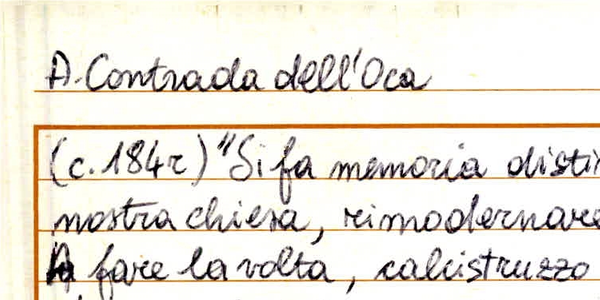 A. Contrada dell'Oca
(c. 184r) "Si fa memoria disti
nostra chiesa, rimodernare
fare la volta, calcistruzzo